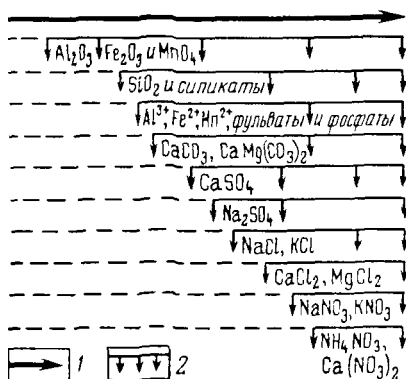 Al₂O₃ Fe₂O₃ и MnO₄
SiO₂ и силикаты
Al³⁺, Fe²⁺, Mn²⁺, фульваты и фосфаты
CaCO₃, CaMg(CO₃)₂
CaSO₄
Na₂SO₄
NaCl, KCl
CaCl₂, MgCl₂
NaNO₃, KNO₃
NH₄NO₃,
Ca(NO₃)₂
1 2